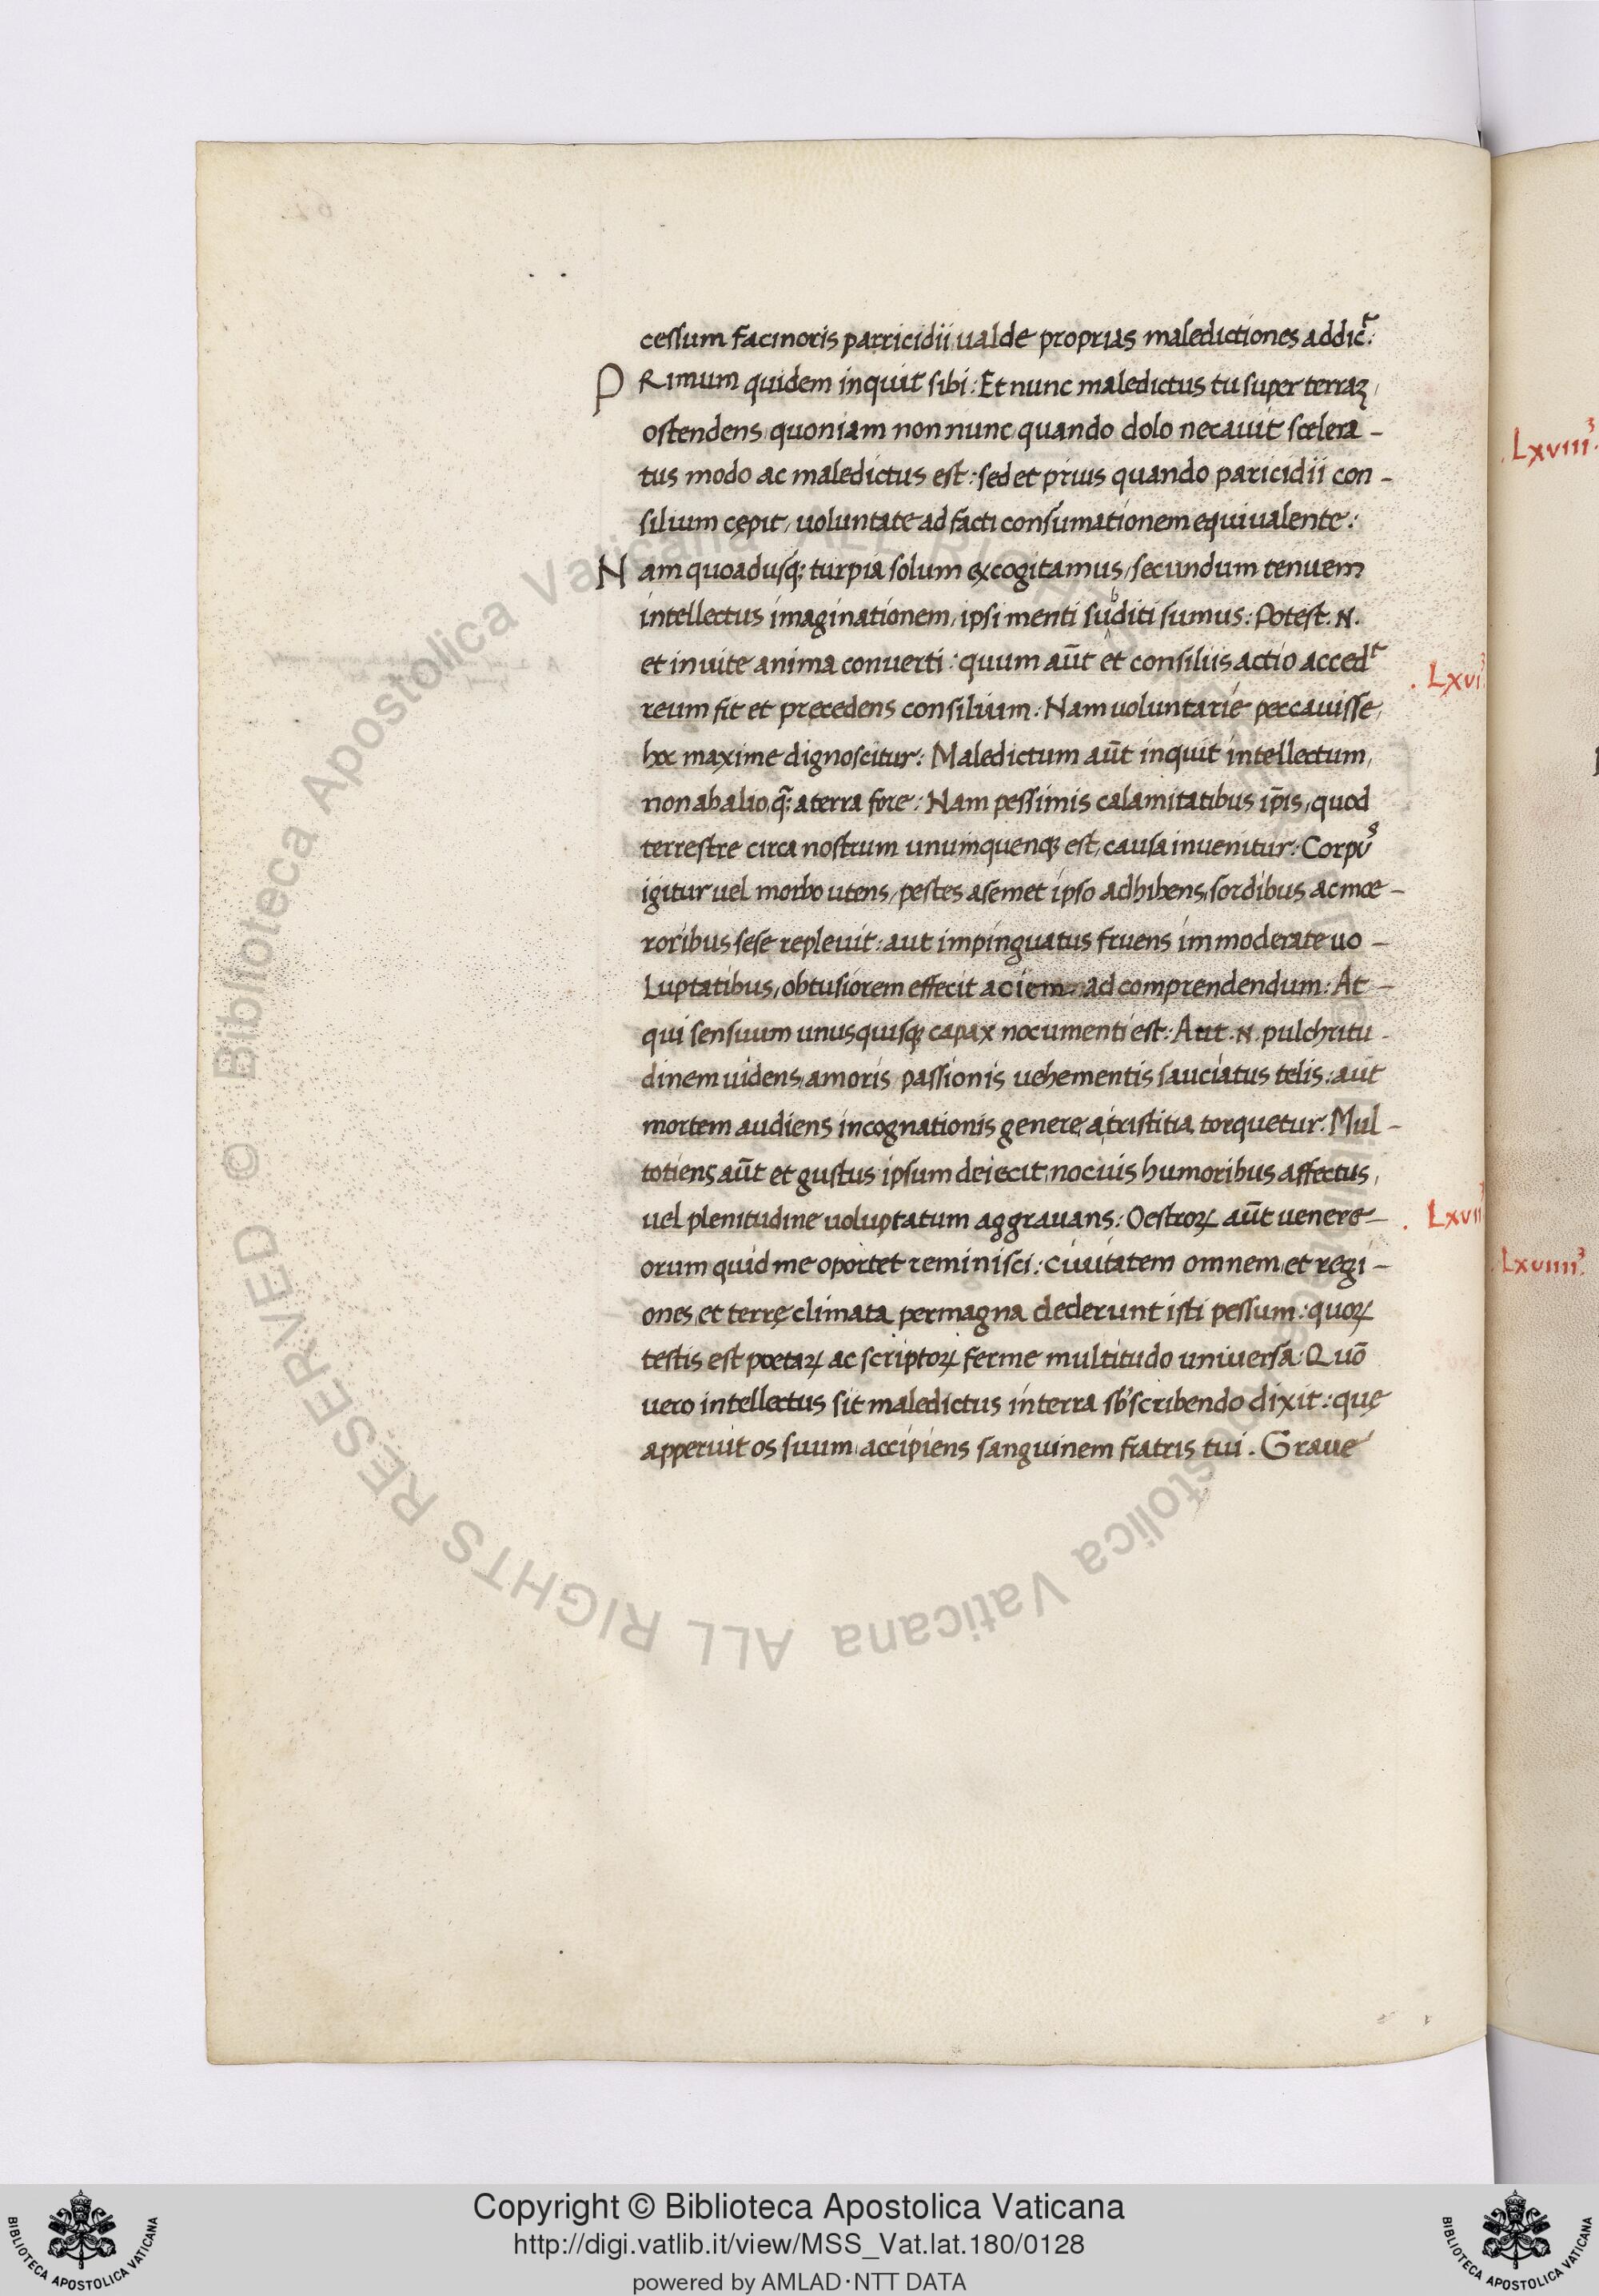 cessum facinoris parricidii, ualde proprias maledictiones addicͭ:
PRimum quidem inquit sibi: Et nunc maledictus tu super terraꝫ,
ostendens, quoniam non nunc quando dolo necauit scelera-
tus modo ac maledictus est: sed et prius quando paricidii con-
silium cępit, uoluntate ad facti consumationem equiualente:
Nam quoadusqꝫ turpia solum excogitamus, secundum tenuem
intellectus imaginationem, ipsi menti subditi sumus: Potest .N.
et inuite anima conuerti: quum aūt et consiliis actio accedͭ
reum fit et pręcedens consilium: Nam uoluntarie peccauisse,
hoc maxime dignoscitur: Maledictum aūt inquit intellectum,
non ab alio, q̄ꝫ a terra fore: Nam pessimis calamitatibus ip̄is, quod
terrestre circa nostrum unumquenqꝫ est, causa inuenitur: Corpus
igitur uel morbo utens, pestes a semet ipso adhibens, sordibus ac moe-
roribus sese repleuit: aut impinguatus fruens immoderate uo-
luptatibus, obtusiorem effecit aciem ad comprendendum: At-
qui sensuum unusquisqꝫ capax nocumenti est: Aut .N. pulchritu-
dinem uidens, amoris passionis uehementis sauciatus telis: aut
mortem audiens in cognationis genere, a tristitia torquetur. Mul-
totiens aūt et gustus ipsum deiecit, nociuis humoribus affectus,
uel plenitudine uoluptatum aggrauans: Oestroꝝ aūt uenere-
orum quid me oportet reminisci: ciuitatem omnem, et regi-
ones, et terrę climata permagna dederunt isti pessum: quoꝝ
testis est poetaꝝ ac scriptoꝝ ferme multitudo uniuersa: Quō
uero intellectus sit maledictus in terra sb'scribendo dixit: quę
apperuit os suum, accipiens sanguinem fratris tui. Graue
. Lxvii
Lxviii.
Lxviiii.
© Biblioteca Apostolica Vaticana ALL RIGHTS RESERVED
Copyright © Biblioteca Apostolica Vaticana
http://digi.vatlib.it/view/MSS_Vat.lat.180/0128
powered by AMLAD·NTT DATA
BIBLIOTECA APOSTOLICA VATICANA
BIBLIOTECA APOSTOLICA VATICANA